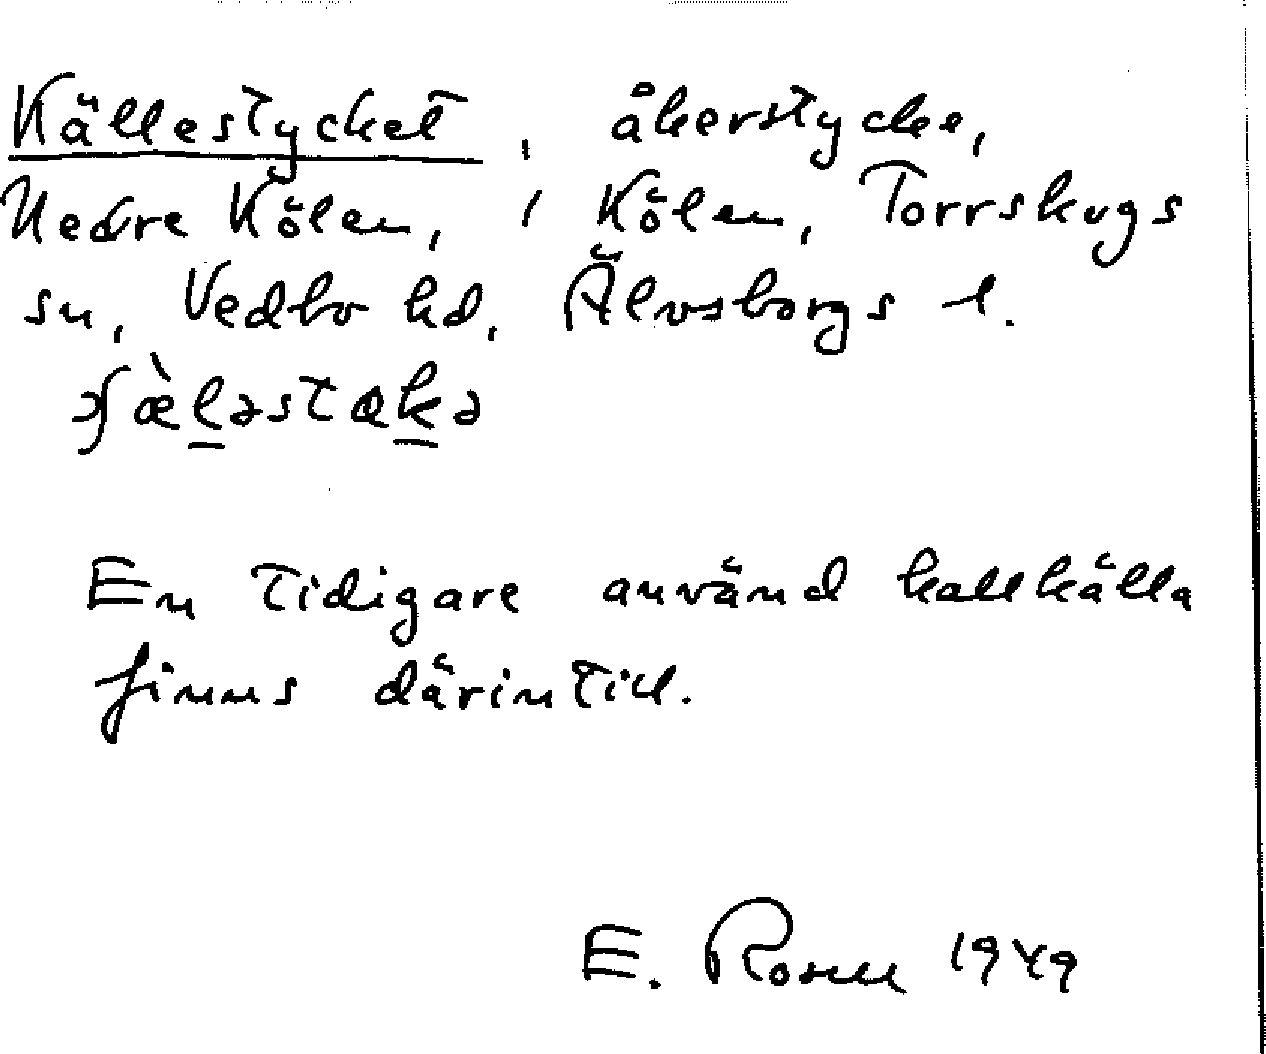 Källestycket, åkerstycke,
Nedre Kölen, i Kölen, Torrskogs
sn, Vedbo hd, Älvsborgs l.
En tidigare använd kallkälla
finns därintill.
E. Rosell 1949